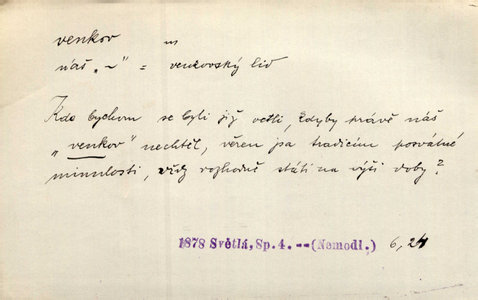 venkov m
náš „~" = venkovský lid
Kde bychom se byli již octli, kdyby právě náš
„venkov" nechtěl, věren jsa tradicím posvátné
minulosti, vždy rozhodně státi na výši doby?
1878 Světlá, Sp. 4. -- (Nemodl.) 6, 24